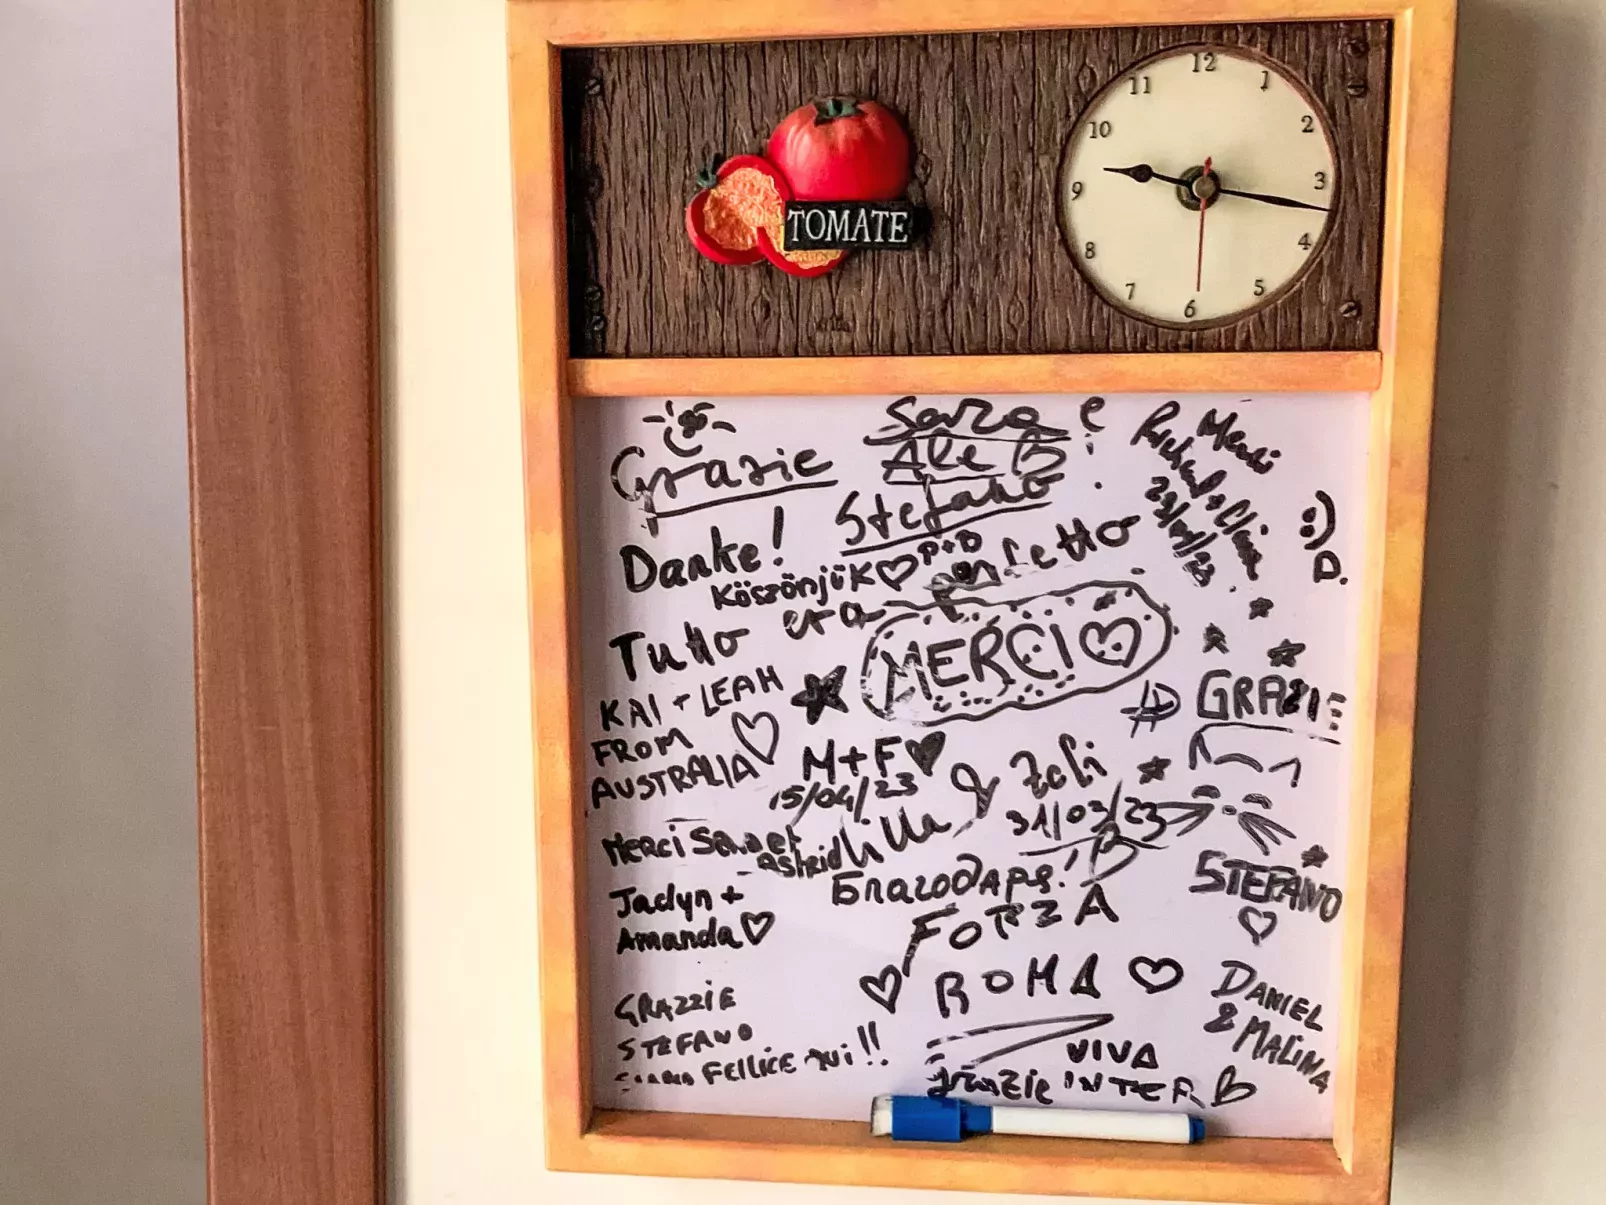 TOMATE
12
1
2
3
4
5
6
7
8
9
10
11
Grazie
Sara e
Ale B
Stefano
Merci
Richard + Claire
Danke!
Köszönjük P+D
Tutto era perfetto
:) D.
MERCI
KAI + LEAH
FROM
AUSTRALIA
GRAZIE
STEFANO
M+F
15/04/23
Lilla & Zoli
31/03/23
Merci Sander
Astrid
Благодаря!
Jaclyn +
Amanda
FORZA
ROMA
DANIEL
& MALINA
GRAZZIE
STEFANO
FELLICE qui!!
VIVA
INTER
grazie